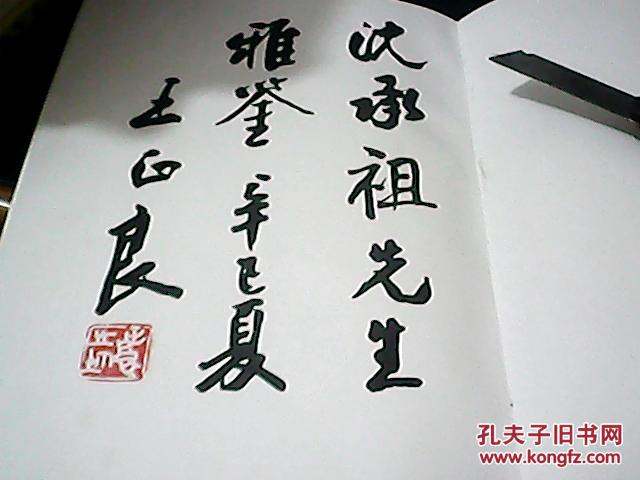 沈承祖先生
雅鉴 辛巳夏
王正良
孔夫子旧书网
kongfz.com